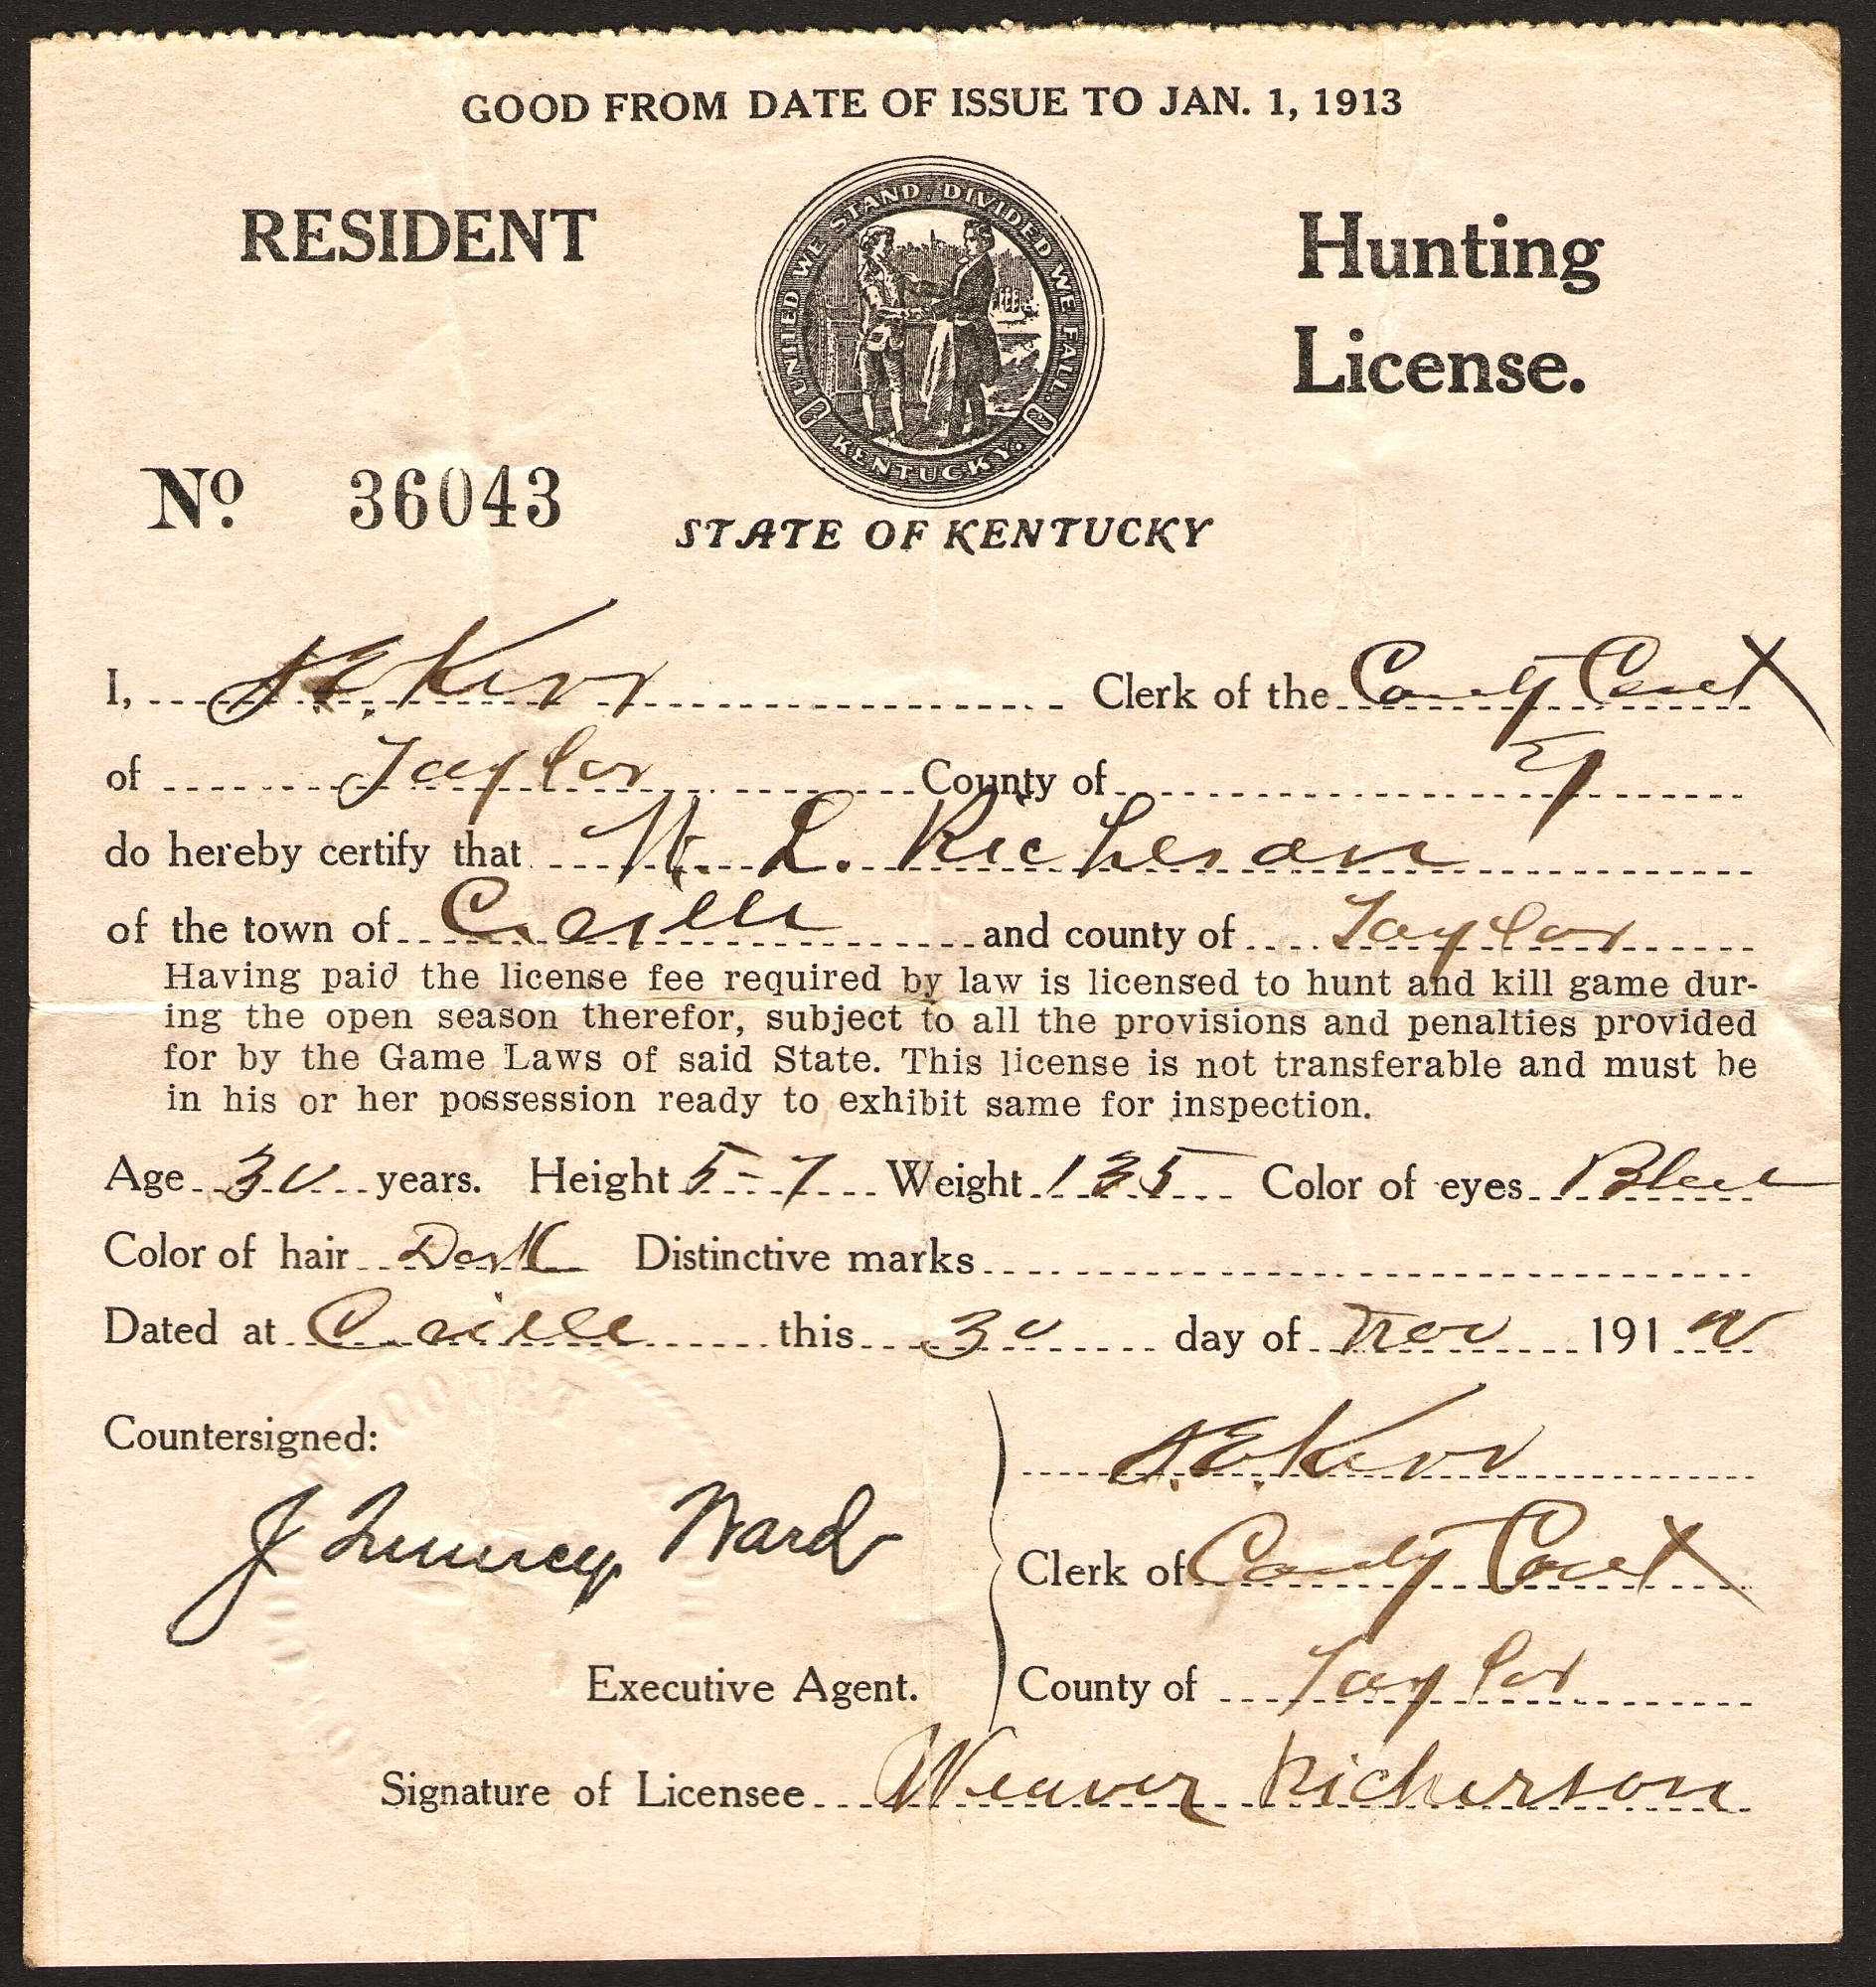 GOOD FROM DATE OF ISSUE TO JAN. 1, 1913
RESIDENT
Hunting
License.
UNITED WE STAND, DIVIDED WE FALL.
KENTUCKY.
No. 36043
STATE OF KENTUCKY
I, Kerr Clerk of the County Court
of Taylor County of Ky
do hereby certify that W. L. Richerson
of the town of Cville and county of Taylor
Having paid the license fee required by law is licensed to hunt and kill game dur-
ing the open season therefor, subject to all the provisions and penalties provided
for by the Game Laws of said State. This license is not transferable and must be
in his or her possession ready to exhibit same for inspection.
Age 30 years. Height 5-7 Weight 135 Color of eyes Blue
Color of hair Dark Distinctive marks
Dated at Cville this 30 day of Nov 1912
Countersigned:
Kerr
J Quincy Ward
Clerk of County Court
Executive Agent.
County of Taylor
Signature of Licensee Weaver Richerson